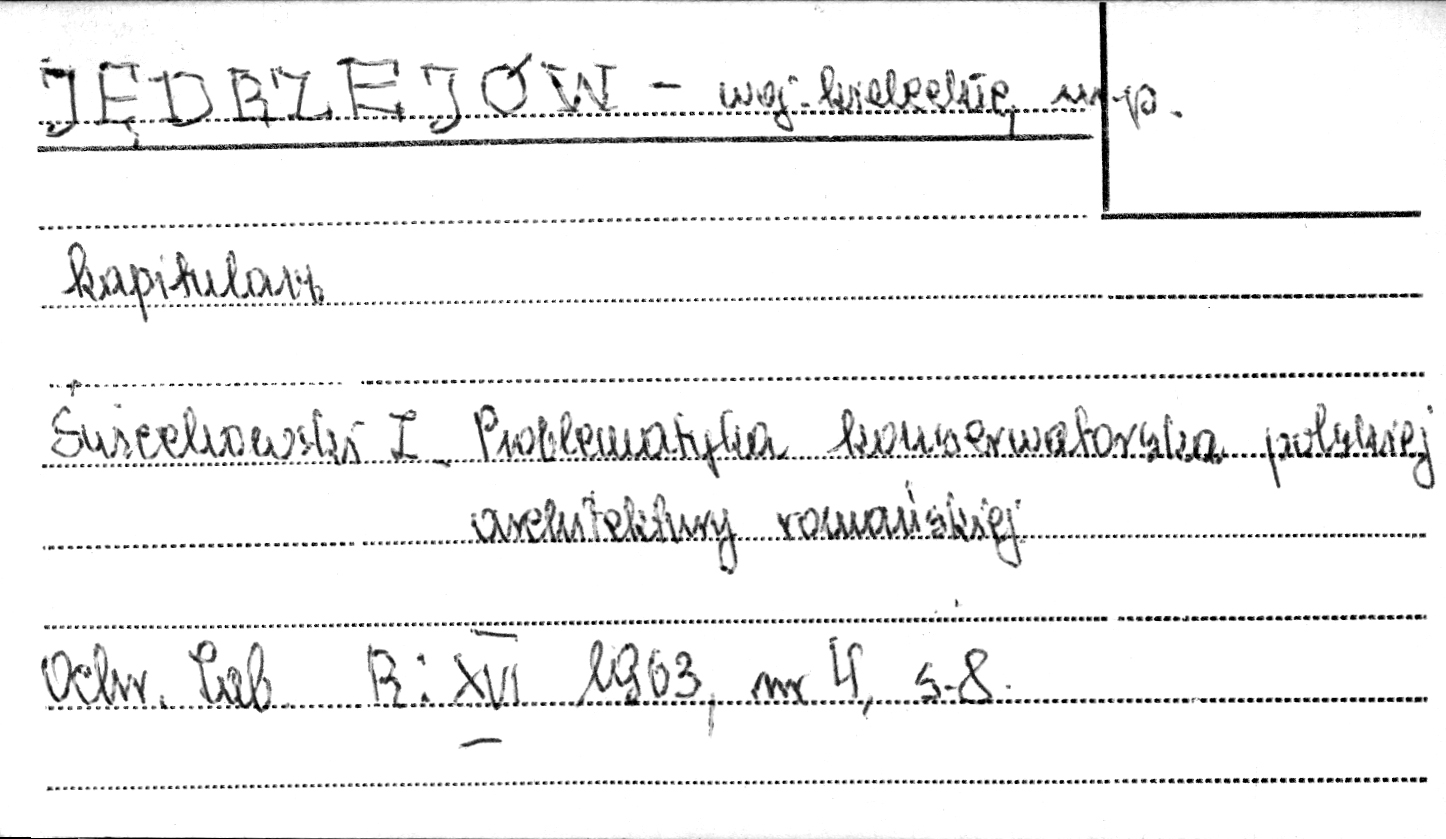 JĘDRZEJÓW - woj. kieleckie, m.p.
kapitularz
Świechowski Z. Problematyka konserwatorska polskiej
architektury romańskiej
Ochr. Zab. R: XVI 1963, nr 4, s.8.